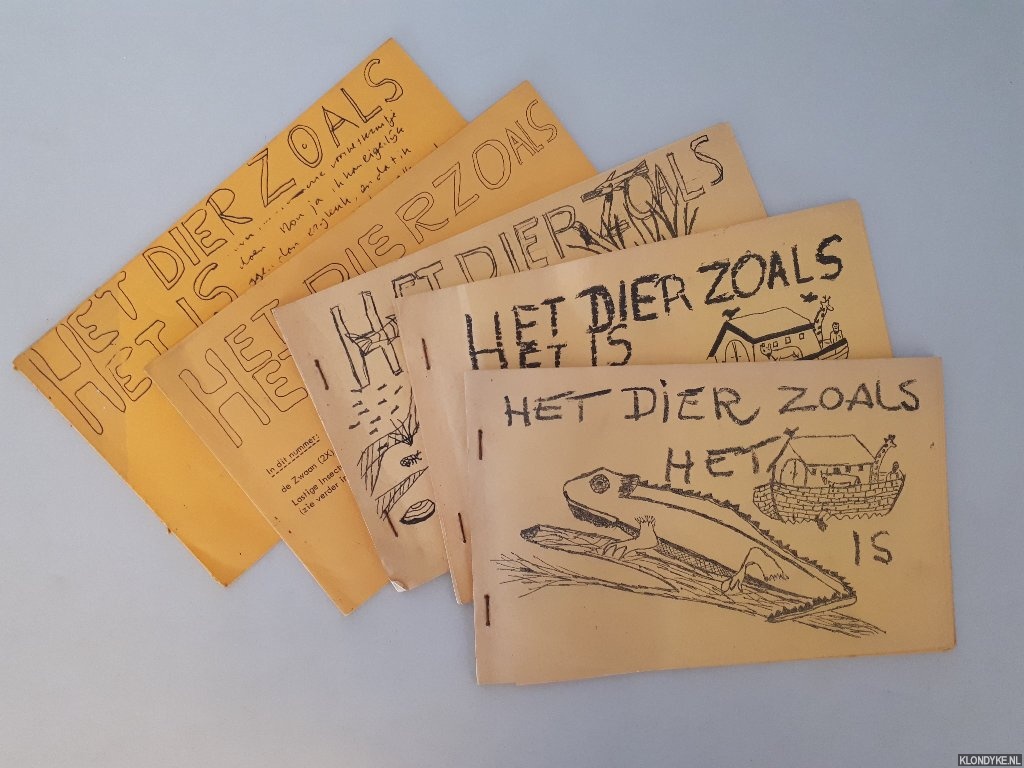 HET DIER ZOALS
HET IS
doen Nou ja ik kan eigelijk
HET DIER ZOALS
HET
In dit nummer:
de Zwaan (2X)
Lastige Insect
(zie verder in
HET DIER ZOALS
H
HET DIER ZOALS
HET IS
HET DIER ZOALS
HET
IS
KLONDYKE.NL